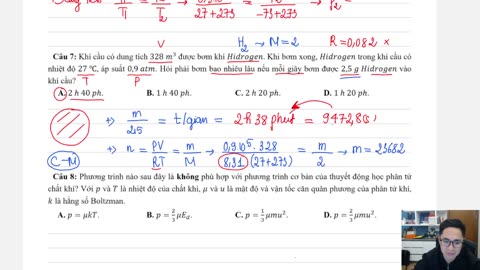 H₂ → M = 2
R = 0,082 ×
V
Câu 7: Khí cầu có dung tích 328 m³ được bơm khí Hidrogen. Khi bơm xong, Hidrogen trong khí cầu có
nhiệt độ 27 °C, áp suất 0,9 atm. Hỏi phải bơm bao nhiêu lâu nếu mỗi giây bơm được 2,5 g Hidrogen vào
khí cầu?
T
P
A. 2 h 40 ph. B. 1 h 40 ph. C. 2 h 20 ph. D. 1 h 20 ph.
⇒ m/2,5 = t/gian = 2h38 phút = 9472,8(s)
⇒ n = PV/RT = m/M → 0,9.10⁵.328/8,31.(27+273) = m/2 → m = 23682
C-M
Câu 8: Phương trình nào sau đây là không phù hợp với phương trình cơ bản của thuyết động học phân tử
chất khí? Với p và T là nhiệt độ của chất khí, μ và u là mật độ và vận tốc căn quân phương của phân tử khí,
k là hằng số Boltzman.
A. p = μkT. B. p = 2/3 μEđ. C. p = 1/3 μmu². D. p = 2/3 μmu².